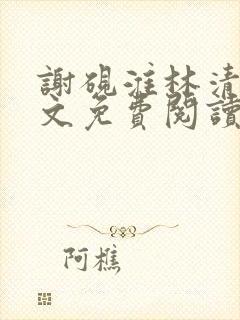 謝硯淮林清
文免費閱讀
阿樵